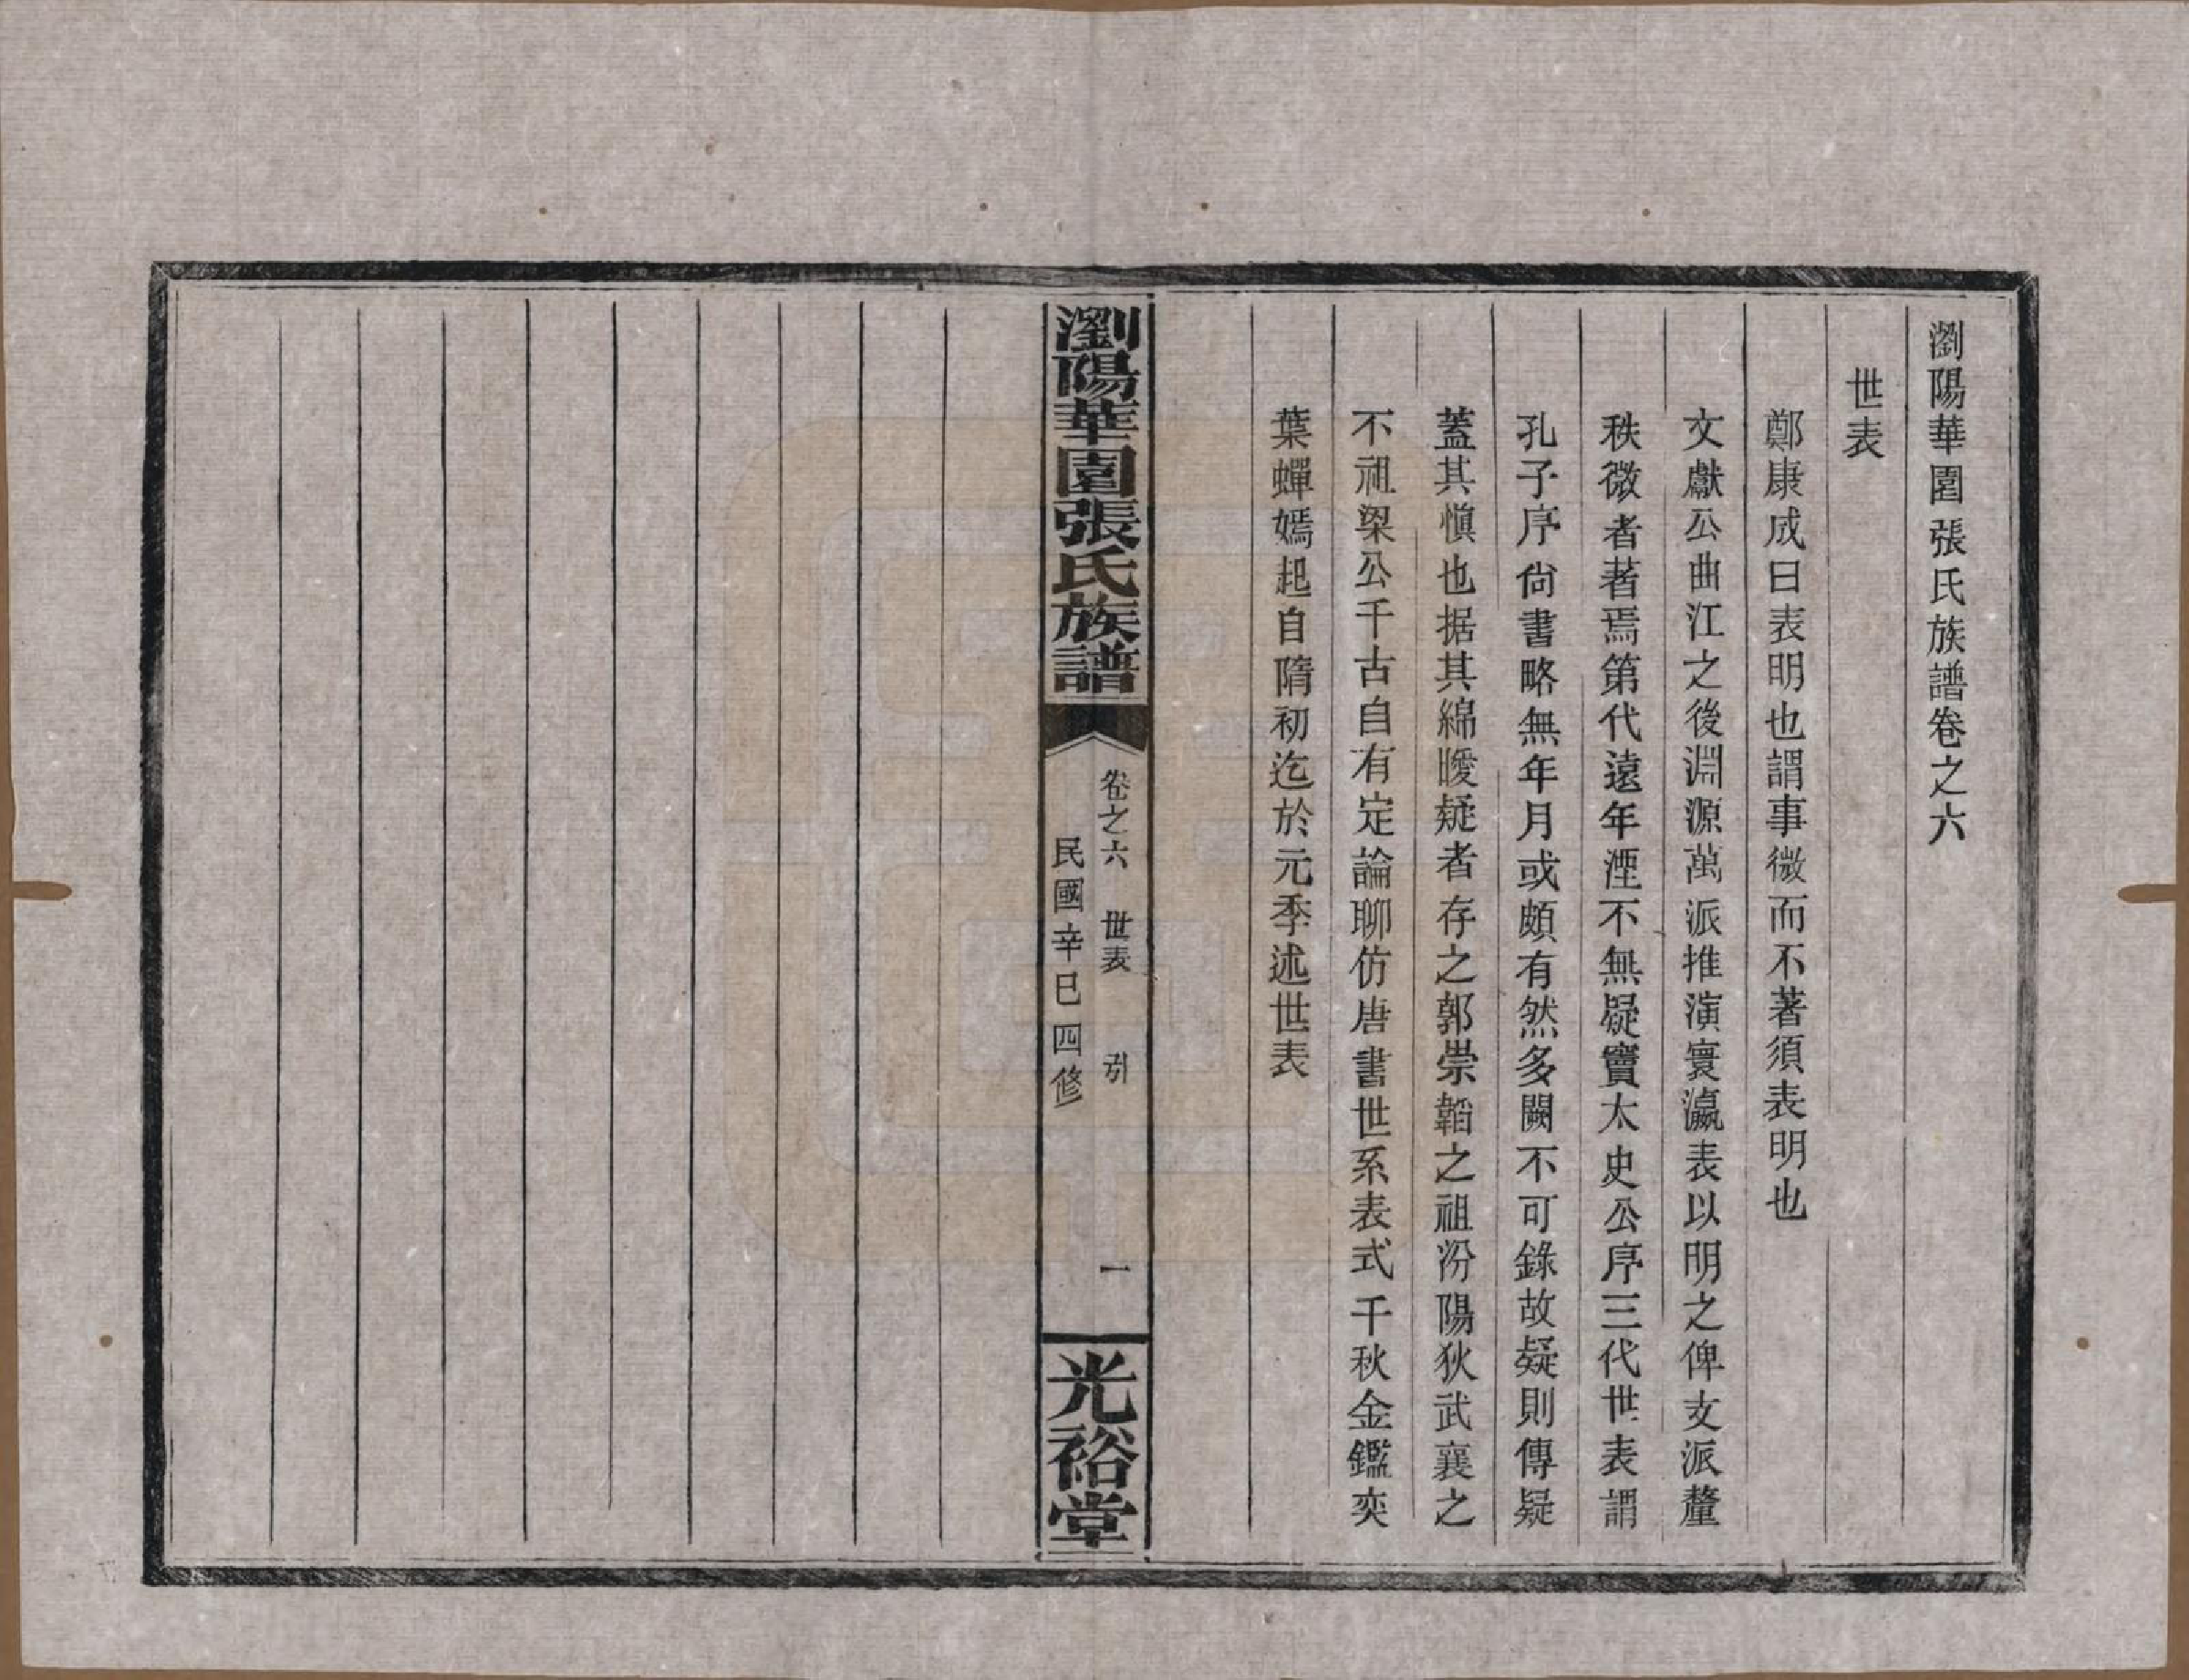 瀏陽華園張氏族譜卷之六
世表
鄭康成曰表明也謂事微而不著須表明也
文獻公曲江之後淵源萬派推演寰瀛表以明之俾支派釐
秩微者著焉第代遠年湮不無疑竇太史公序三代世表謂
孔子序尙書略無年月或頗有然多闕不可錄故疑則傳疑
蓋其愼也据其綿曖疑者存之郭崇韜之祖汾陽狄武襄之
不祖梁公千古自有定論聊仿唐書世系表式千秋金鑑奕
葉蟬嫣起自隋初迄於元季述世表
瀏陽華園張氏族譜
卷之六 世表 引 一
民國辛巳四修
光裕堂